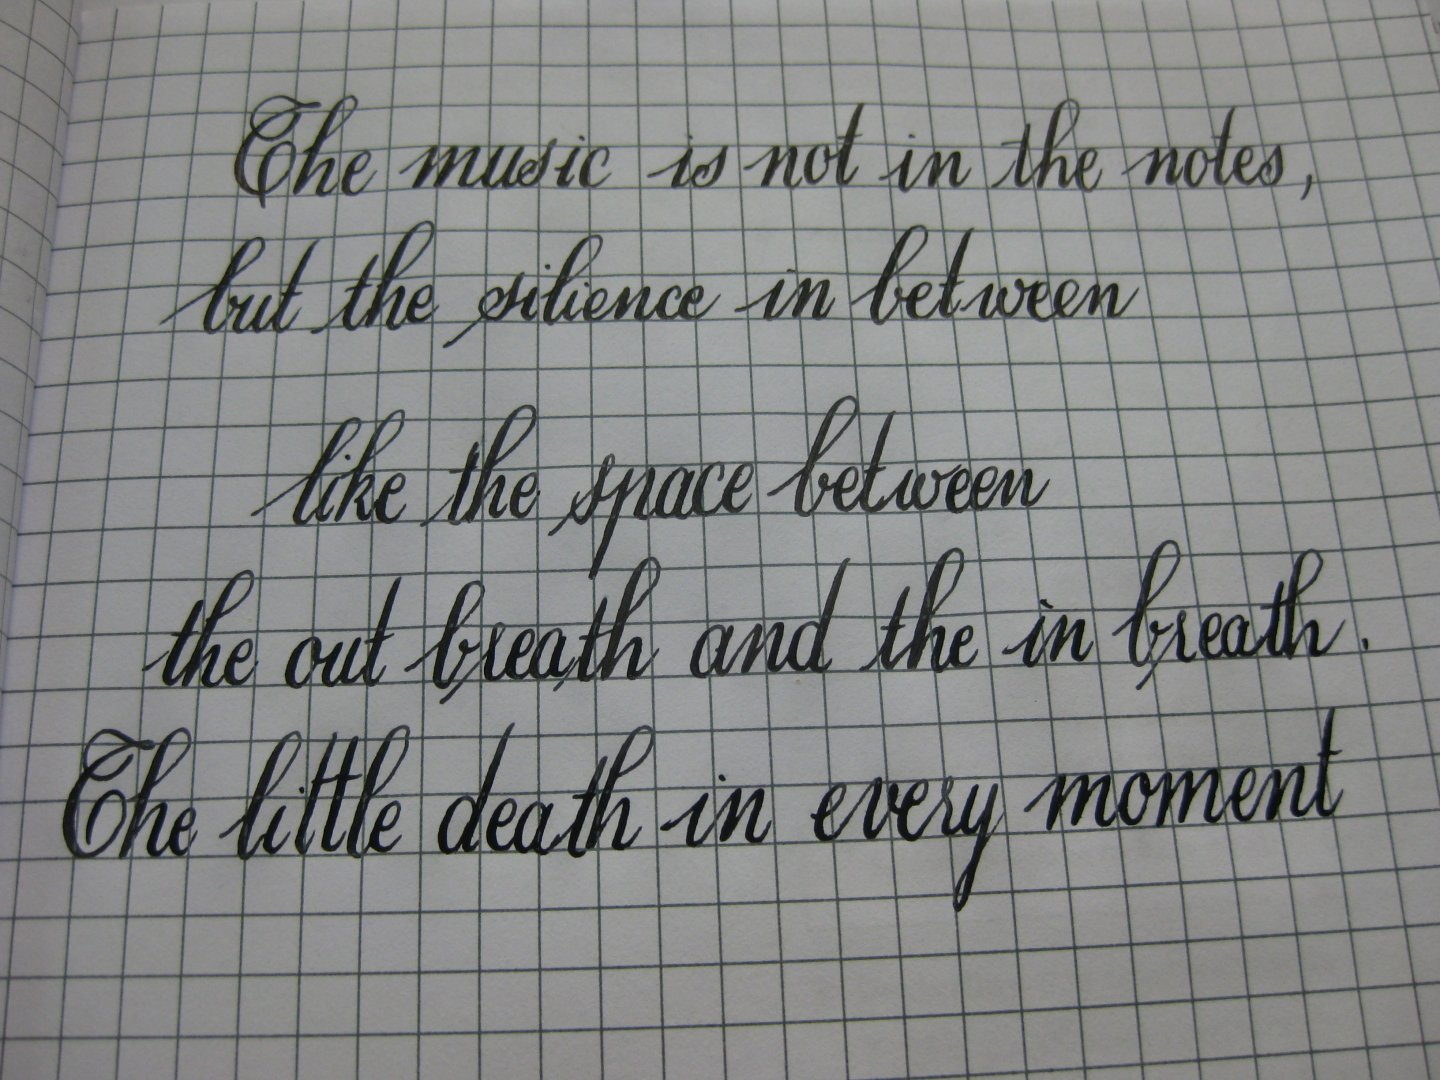 The music is not in the notes,
but the silience in between
like the space between
the out breath and the in breath.
The little death in every moment